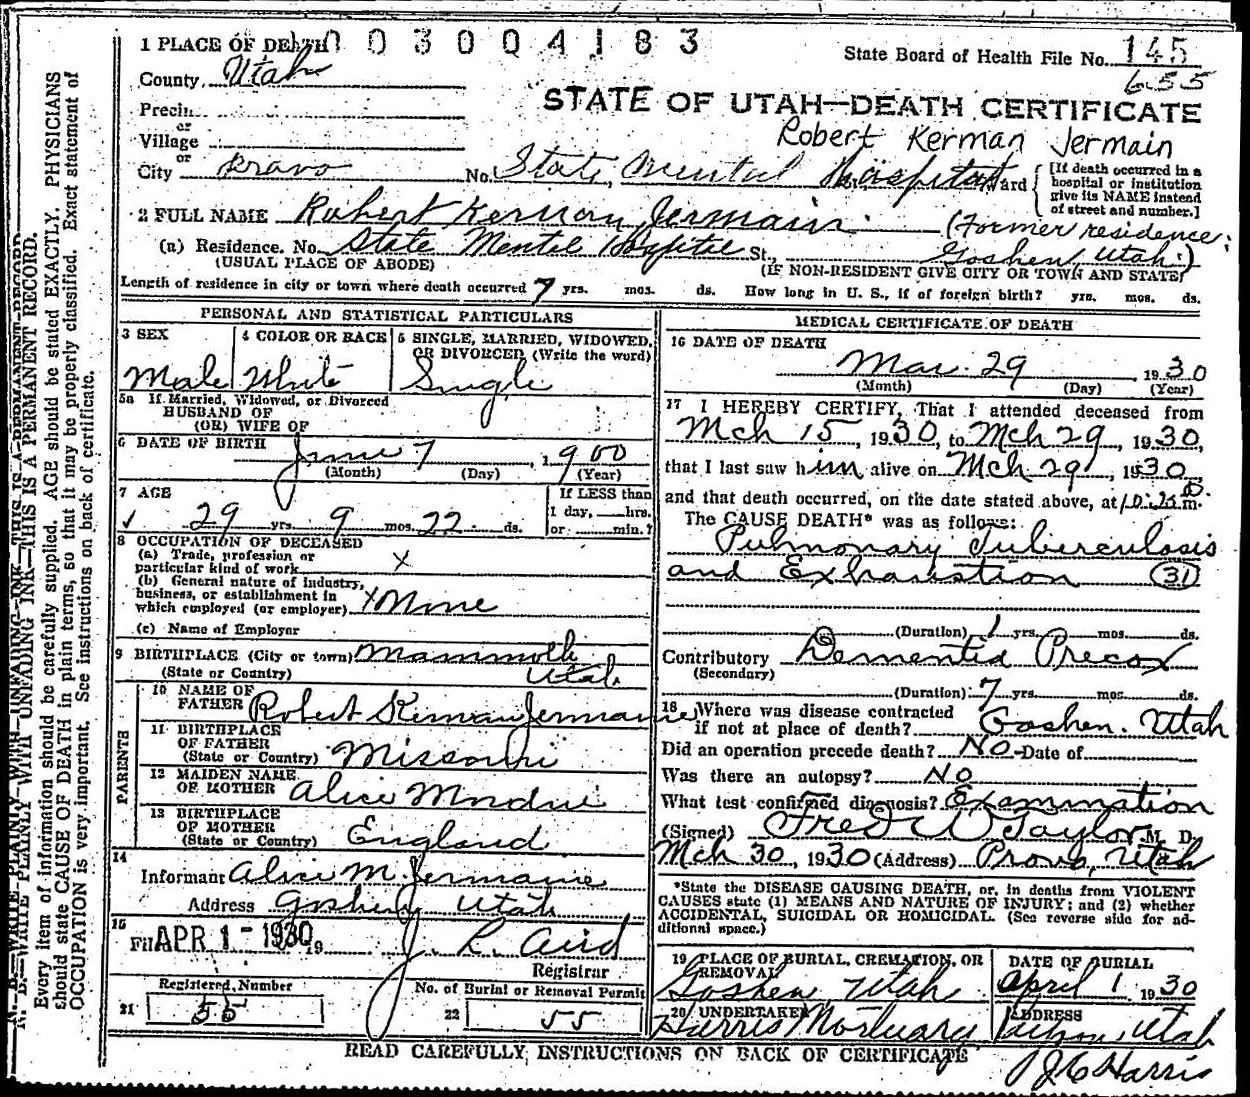 1 PLACE OF DEATH 003004183
State Board of Health File No. 145
County Utah 655
STATE OF UTAH—DEATH CERTIFICATE
Precin.
or
Village
Robert Kerman Jermain
or
City Provo No. State Mental Hospital Ward
[If death occurred in a
hospital or institution
give its NAME instead
of street and number.]
2 FULL NAME Robert Kerman Jermain (Former residence:
(a) Residence. No. State Mental Hospital St., Goshen, Utah.)
(USUAL PLACE OF ABODE) (IF NON-RESIDENT GIVE CITY OR TOWN AND STATE)
Length of residence in city or town where death occurred 7 yrs. mos. ds. How long in U. S., if of foreign birth? yrs. mos. ds.
PERSONAL AND STATISTICAL PARTICULARS
3 SEX
Male
4 COLOR OR RACE
White
5 SINGLE, MARRIED, WIDOWED,
OR DIVORCED (Write the word)
Single
5a If Married, Widowed, or Divorced
HUSBAND OF
(OR) WIFE OF
6 DATE OF BIRTH
June 7, 1900
(Month) (Day) (Year)
7 AGE
29 yrs. 9 mos. 22 ds.
If LESS than
1 day, hrs.
or min.?
8 OCCUPATION OF DECEASED
(a) Trade, profession or
particular kind of work X
(b) General nature of industry,
business, or establishment in
which employed (or employer) X
(c) Name of Employer
9 BIRTHPLACE (City or town) Mammoth
(State or Country) Utah
PARENTS
10 NAME OF
FATHER Robert Kerman Jermaine
11 BIRTHPLACE
OF FATHER
(State or Country) Missouri
12 MAIDEN NAME
OF MOTHER Alice
13 BIRTHPLACE
OF MOTHER
(State or Country) England
14
Informant Alice M. Jermaine
Address Goshen, Utah
15
Fil APR 1 - 1930 19 J. R.
Registrar
Registered Number
21 55
No. of Burial or Removal Permit
22 55
MEDICAL CERTIFICATE OF DEATH
16 DATE OF DEATH
Mar. 29 1930
(Month) (Day) (Year)
17 I HEREBY CERTIFY, That I attended deceased from
Mch 15, 1930, to Mch 29, 1930,
that I last saw him alive on Mch 29, 1930
and that death occurred, on the date stated above, at m.
The CAUSE DEATH* was as follows:
Pulmonary Tuberculosis
and Exhaustion (31)
(Duration) 1 yrs. mos. ds.
Contributory Dementia Precox
(Secondary)
(Duration) 7 yrs. mos. ds.
18 Where was disease contracted
if not at place of death? Goshen. Utah
Did an operation precede death? No Date of
Was there an autopsy? No
What test confirmed diagnosis? Examination
(Signed) Fred W Taylor, M. D.
Mch 30, 1930 (Address) Provo, Utah
*State the DISEASE CAUSING DEATH, or, in deaths from VIOLENT
CAUSES state (1) MEANS AND NATURE OF INJURY; and (2) whether
ACCIDENTAL, SUICIDAL OR HOMICIDAL. (See reverse side for ad-
ditional space.)
19 PLACE OF BURIAL, CREMATION, OR
REMOVAL
Goshen, Utah
DATE OF BURIAL
April 1 1930
20 UNDERTAKER
Harris Mortuary
ADDRESS
Payson, Utah
READ CAREFULLY, INSTRUCTIONS ON BACK OF CERTIFICATE
J C Harris
N. B.—WRITE PLAINLY WITH UNFADING INK—THIS IS A PERMANENT RECORD.
Every item of information should be carefully supplied. AGE should be stated EXACTLY. PHYSICIANS
should state CAUSE OF DEATH in plain terms, so that it may be properly classified. Exact statement of
OCCUPATION is very important. See instructions on back of certificate.